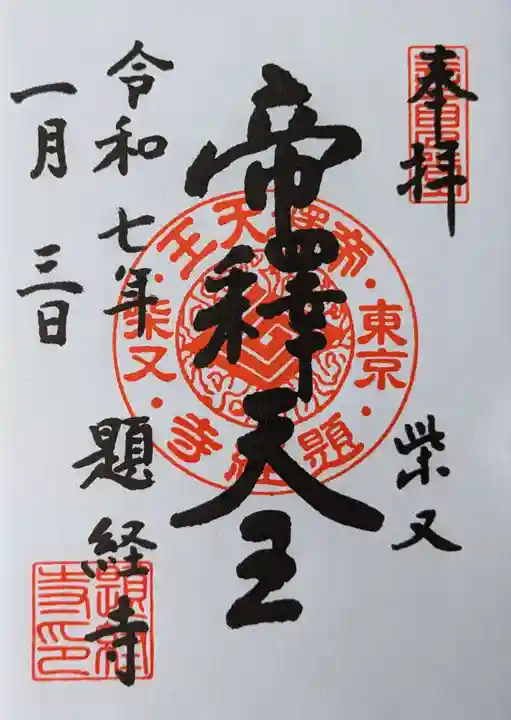 奉拝
柴又
帝釋天王
令和七年
一月三日
題経寺
帝釋天王
東京
柴又
題経寺